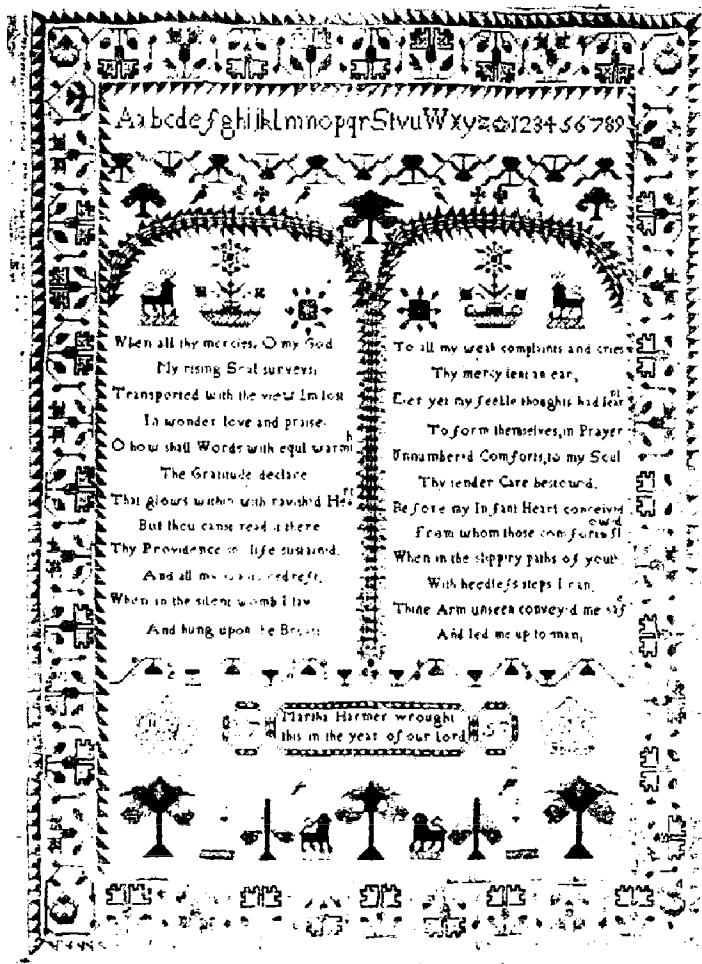 AabcdefghIiklmnopqrStvuWxyz 123456789
When all thy mercies, O my God
My rising Soul surveys;
Transported with the view Im lost
In wonder love and praise.
O how shall Words with equl warmth
The Gratitude declare
That glows within with ravished Heart
But thou canst read it there
Thy Providence my life sustained,
And all my redrest,
When in the silent womb I lay
And hung upon the Breast
To all my weak complaints and cries
Thy mercy lent an ear,
Eer yet my feeble thoughts had leart
To form themselves, in Prayer
Unnumbered Comforts, to my Soul
Thy tender Care bestowd,
Before my Infant Heart conceived
From whom those comforts flowd
When in the slippry paths of youth
With heedless steps I ran,
Thine Arm unseen conveyd me safe
And led me up to man,
Martha Harmer wrought
this in the year of our Lord